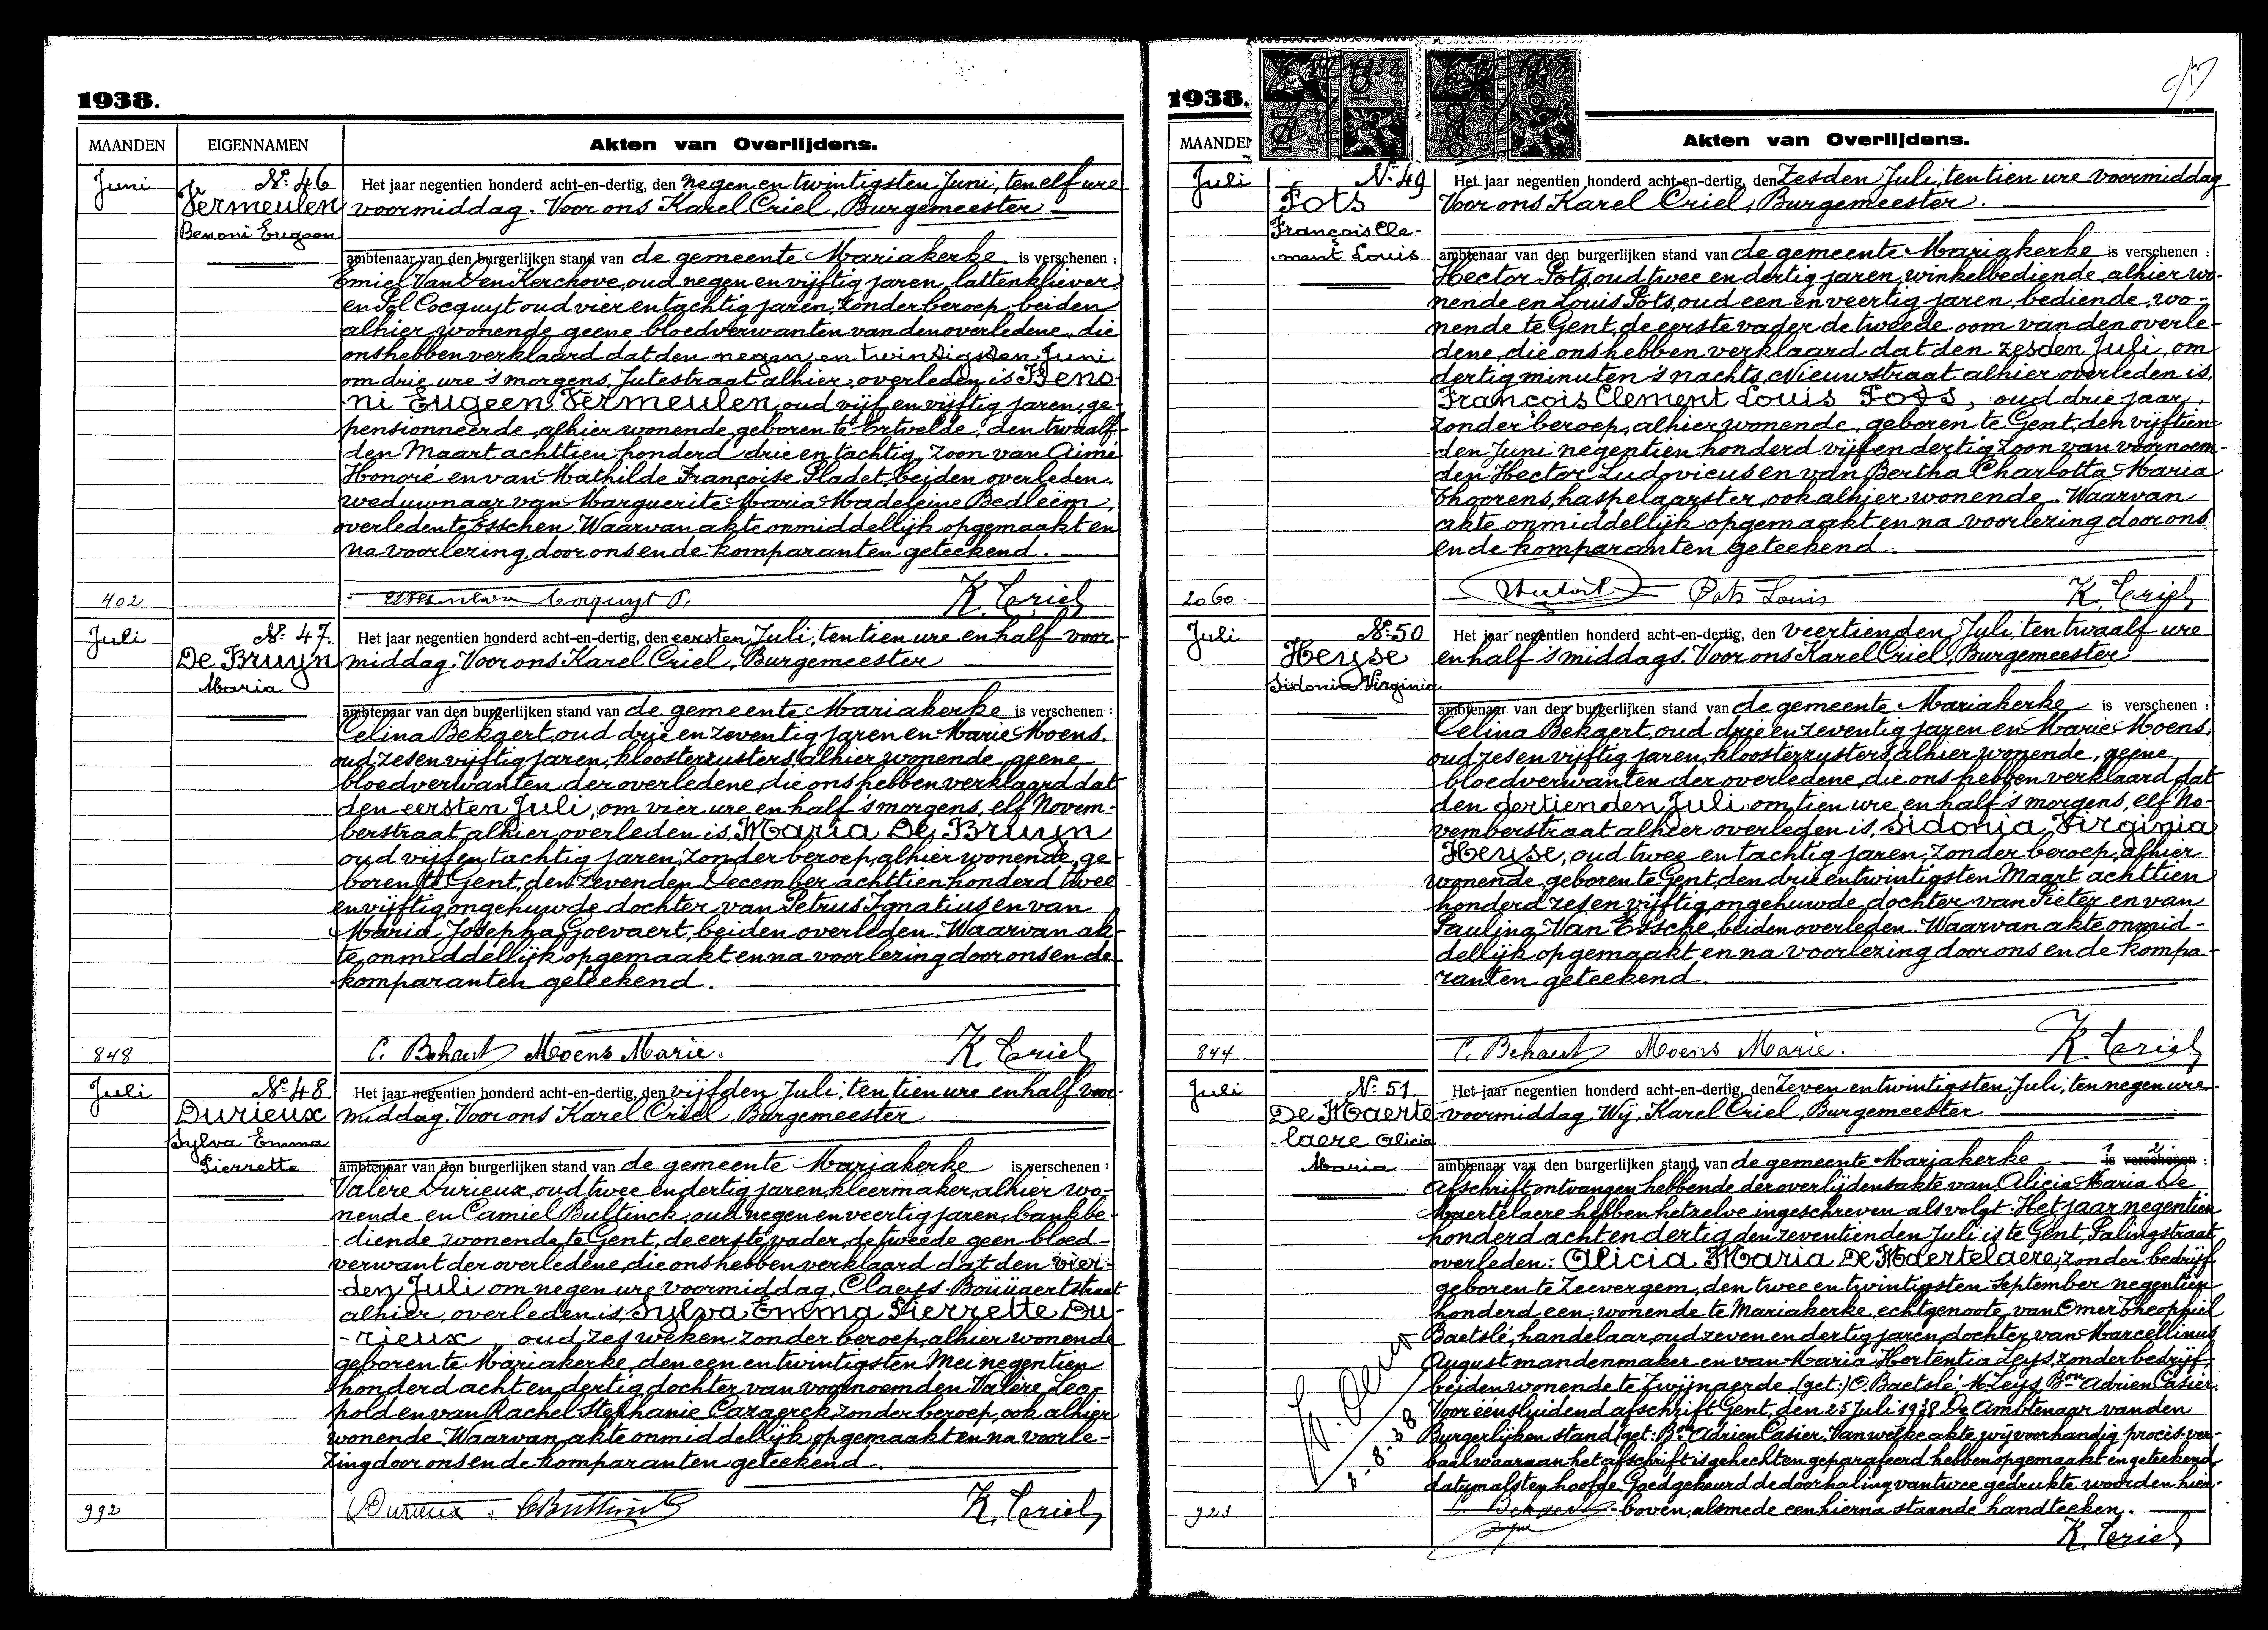 1938.
MAANDEN EIGENNAMEN Akten van Overlijdens.
Juni
Nr. 46
Vermeulen
Benoni Eugeen
Het jaar negentien honderd acht-en-dertig, den negen en twintigsten Juni, ten elf ure
voormiddag. Voor ons Karel Criel, Burgemeester
ambtenaar van den burgerlijken stand van de gemeente Mariakerke is verschenen :
Emiel Van Den Kerchove, oud negen en vijftig jaren, lattenkliever,
en Pol Cocquyt oud vier en tachtig jaren, zonder beroep, beiden
alhier wonende geene bloedverwanten van den overledene, die
ons hebben verklaard dat den negen en twintigsten Juni
om drie ure 's morgens, Jutestraat alhier, overleden is Beno-
ni Eugeen Vermeulen, oud vijf en vijftig jaren, ge-
pensionneerde, alhier wonende, geboren te Ertvelde, den twaalf-
den Maart achttien honderd drie en tachtig, zoon van Aimé
Honoré en van Mathilde Françoise Pladet, beiden overleden.
weduwnaar van Marguerite Maria Madeleine Bedleëm,
overleden te Esschen. Waarvan akte onmiddellijk opgemaakt en
na voorlezing door ons en de komparanten geteekend.
Cocquyt P. K. Criel
402
Juli
Nr. 47.
De Bruyn
Maria
Het jaar negentien honderd acht-en-dertig, den eersten Juli, ten tien ure en half voor-
middag. Voor ons Karel Criel, Burgemeester
ambtenaar van den burgerlijken stand van de gemeente Mariakerke is verschenen :
Celina Bekaert, oud drie en zeventig jaren en Marie Moens,
oud zes en vijftig jaren, kloosterzusters, alhier wonende, geene
bloedverwanten der overledene, die ons hebben verklaard dat
den eersten Juli, om vier ure en half 's morgens, elf Novem-
berstraat alhier overleden is, Maria De Bruyn
oud vijf en tachtig jaren, zonder beroep, alhier wonende, ge-
boren te Gent, den zevenden December achttien honderd twee
en vijftig ongehuwde dochter van Petrus Ignatius en van
Maria Josepha Goevaert, beiden overleden. Waarvan ak-
te onmiddellijk opgemaakt en na voorlezing door ons en de
komparanten geteekend.
C. Bekaert Moens Marie. K. Criel
848
Juli
Nr. 48.
Durieux
Sylva Emma
Pierrette
Het jaar negentien honderd acht-en-dertig, den vijfden Juli, ten tien ure en half voor-
middag. Voor ons Karel Criel, Burgemeester
ambtenaar van den burgerlijken stand van de gemeente Mariakerke is verschenen :
Valère Durieux, oud twee en dertig jaren, kleermaker, alhier wo-
nende en Camiel Bultinck, oud negen en veertig jaren, bankbe-
diende wonende te Gent, de eerste vader, de tweede geen bloed-
verwant der overledene, die ons hebben verklaard dat den vier-
den Juli om negen ure voormiddag, Claeys-Boüüaertstraat
alhier, overleden is, Sylva Emma Pierrette Du-
-rieux, oud zes weken zonder beroep, alhier wonende
geboren te Mariakerke, den een en twintigsten Mei negentien
honderd acht en dertig, dochter van voornoemden Valère Leo-
pold en van Rachel Stephanie zonder beroep, ook alhier
wonende. Waarvan akte onmiddellijk opgemaakt en na voorle-
zing door ons en de komparanten geteekend.
Durieux. CBultinck K. Criel
992
1938.
MAANDEN Akten van Overlijdens.
Juli
Nr. 49
Pots
François Cle-
ment Louis
Het jaar negentien honderd acht-en-dertig, den Zesden Juli, ten tien ure voormiddag
Voor ons Karel Criel, Burgemeester.
ambtenaar van den burgerlijken stand van de gemeente Mariakerke is verschenen :
Hector Pots, oud twee en dertig jaren, winkelbediende, alhier wo-
nende en Louis Pots, oud een en veertig jaren, bediende, wo-
nende te Gent, de eerste vader de tweede oom van den overle-
dene, die ons hebben verklaard dat den zesden Juli, om
dertig minuten 's nachts, Nieuwstraat alhier overleden is,
François Clement Louis Pots, oud drie jaar,
zonder beroep, alhier wonende, geboren te Gent, den vijftien-
den Juni negentien honderd vijf en dertig zoon van voornoem-
den Hector Ludovicus en van Bertha Charlotta Maria
Thoorens, haspelaarster, ook alhier wonende. Waarvan
akte onmiddellijk opgemaakt en na voorlezing door ons
en de komparanten geteekend.
Pots Louis K. Criel
2060.
Juli
Nr. 50
Heyse
Sidonia Virginia
Het jaar negentien honderd acht-en-dertig, den veertienden Juli, ten twaalf ure
en half 's middags. Voor ons Karel Criel, Burgemeester
ambtenaar van den burgerlijken stand van de gemeente Mariakerke is verschenen :
Celina Bekaert, oud drie en zeventig jaren en Marie Moens,
oud zes en vijftig jaren, kloosterzusters alhier wonende, geene
bloedverwanten der overledene, die ons hebben verklaard, dat
den dertienden Juli om tien ure en half 's morgens, elf No-
vemberstraat alhier overleden is, Sidonia Virginia
Heyse, oud twee en tachtig jaren, zonder beroep, alhier
wonende geboren te Gent, den drie en twintigsten Maart achttien
honderd zes en vijftig, ongehuwde dochter van Pieter en van
Paulina Van Essche, beiden overleden. Waarvan akte onmid-
dellijk opgemaakt en na voorlezing door ons en de kompa-
ranten geteekend.
C. Bekaert Moens Marie. K. Criel
844
Juli
Nr. 51
De Maerte
laere Alicia
Maria
Het jaar negentien honderd acht-en-dertig, den Zeven en twintigsten Juli, ten negen ure
voormiddag. Wij, Karel Criel, Burgemeester
ambtenaar van den burgerlijken stand van de gemeente Mariakerke 1 2 is verschenen :
Afschrift ontvangen hebbende der overlijdensakte van, Alicia Maria De
Maertelaere hebben hetzelve ingeschreven als volgt: Het jaar negentien
honderd acht en dertig den zeventienden Juli is te Gent, Palingstraat
overleden: Alicia Maria De Maertelaere, zonder bedrijf
geboren te Zeevergem, den twee en twintigsten September negentien
honderd een, wonende te Mariakerke, echtgenoote van Omer Theophiel
Baetslé, handelaar, oud zeven en dertig jaren, dochter van Marcellinus
August mandenmaker en van Maria Hortentia Leys, zonder bedrijf,
beiden wonende te Zwijnaerde. (get:) O. Baetslé. M. Leys, Bon Adrien Casier.
Voor éénsluidend afschrift Gent, den 25 Juli 1938. De Ambtenaar van den
Burgerlijken stand (get: Bon Adrien Casier. Van welke akte, wij voorhandig procès-ver-
baal waaraan het afschrift is gehecht en geparafeerd hebben opgemaakt en geteekend
datum als ten hoofde. Goedgekeurd de doorhaling van twee gedrukte woorden hier-
C. Bekaert -boven, alsmede een hierna staande handteeken.
K. Criel
2-8-38
923.